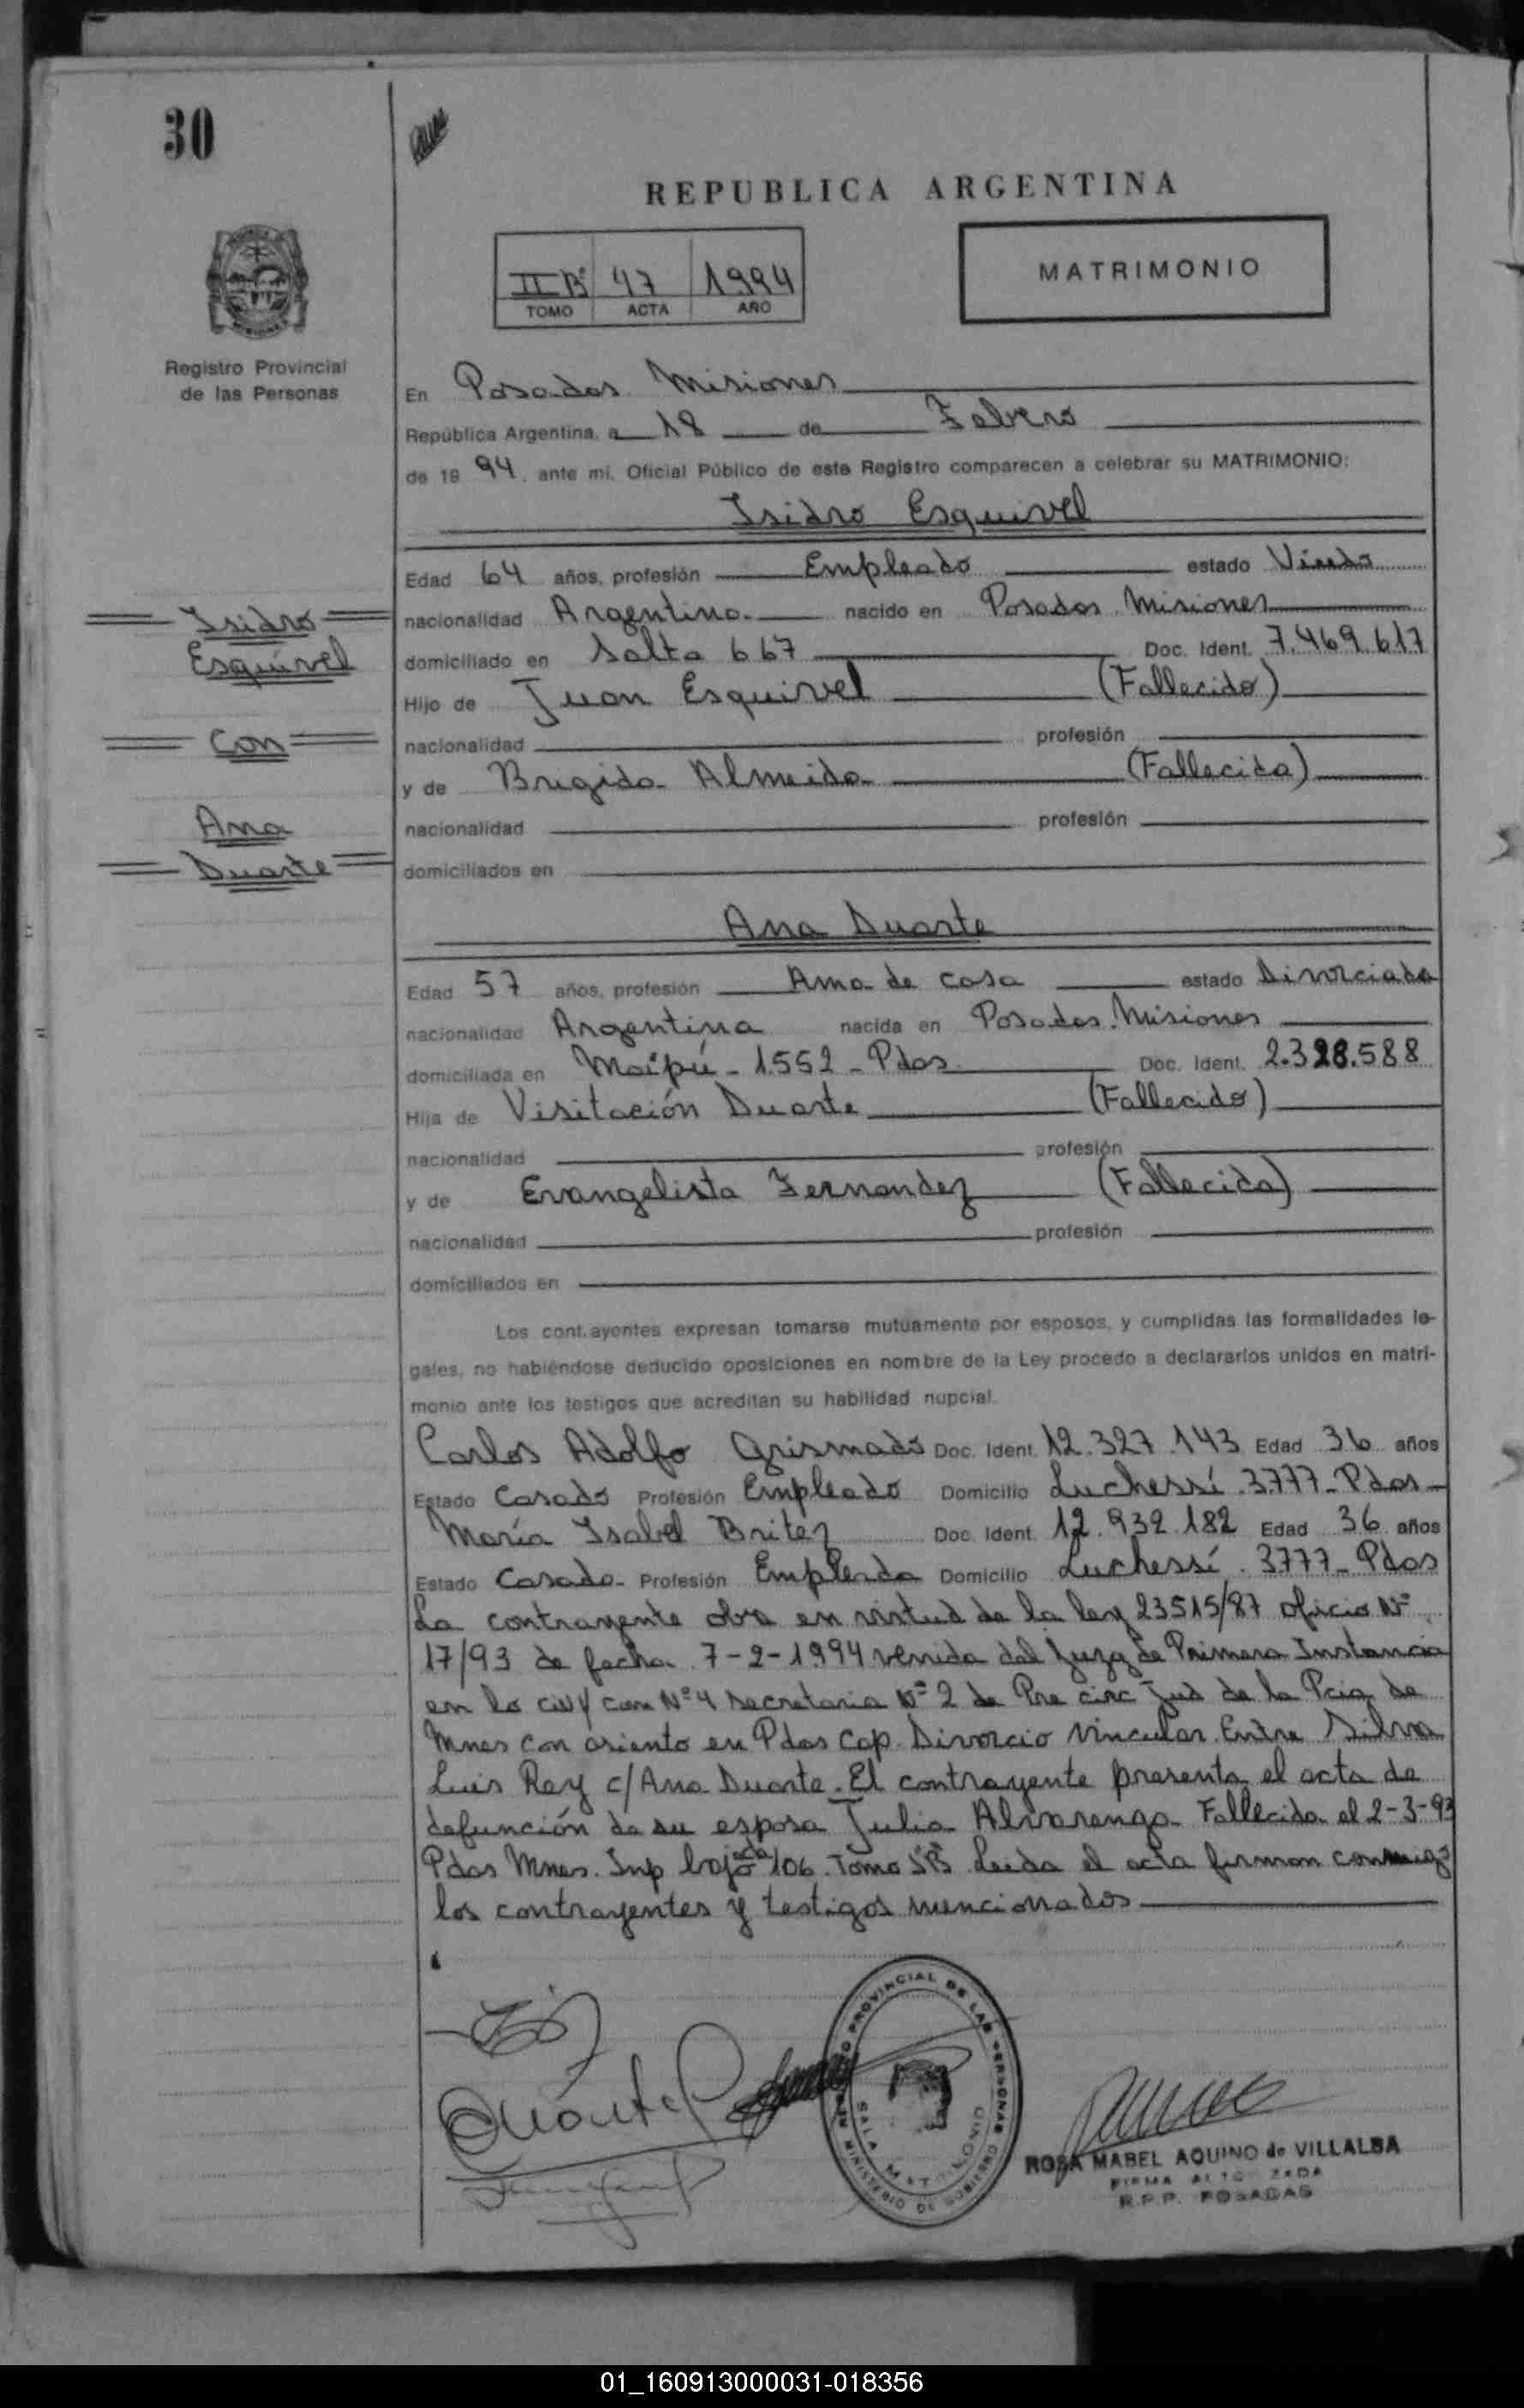 30
REPUBLICA ARGENTINA
II Bº 47 1994
TOMO ACTA AÑO
MATRIMONIO
Registro Provincial
de las Personas
En Posadas. Misiones
República Argentina, a 18 de Febrero
de 19 94, ante mi, Oficial Público de este Registro comparecen a celebrar su MATRIMONIO:
Isidro Esquivel
Edad 64 años, profesión Empleado estado Viudo
nacionalidad Argentina nacido en Posadas. Misiones
domiciliado en Salta 667 Doc. Ident. 7.469.617
Hijo de Juan Esquivel (Fallecido)
nacionalidad profesión
y de Brigida Almeida (Fallecida)
nacionalidad profesión
domiciliados en
Isidro
Esquivel
Con
Ana
Duarte
Ana Duarte
Edad 57 años, profesión Ama de casa estado Divorciada
nacionalidad Argentina nacida en Posadas. Misiones
domiciliada en Maipú - 1552 - Pdas. Doc. Ident. 2.328.588
Hija de Visitación Duarte (Fallecido)
nacionalidad profesión
y de Evangelista Fernandez (Fallecida)
nacionalidad profesión
domiciliados en
Los contrayentes expresan tomarse mutuamente por esposos, y cumplidas las formalidades le-
gales, no habiéndose deducido oposiciones en nombre de la Ley procedo a declararlos unidos en matri-
monio ante los testigos que acreditan su habilidad nupcial.
Carlos Adolfo Grismado Doc. Ident. 12.327.143 Edad 36 años
Estado Casado Profesión Empleado Domicilio Luchessí. 3777 - Pdas -
María Isabel Britez Doc. Ident. 12.932.182 Edad 36 años
Estado Casada - Profesión Empleada Domicilio Luchessí. 3777 - Pdas
La contrayente obra en virtud de la ley 23515/87 oficio Nº
17/93 de fecha 7-2-1994 venida del Juzg de Primera Instancia
en lo civ y com Nº 4 secretaria Nº 2 de Pra circ Jud de la Pcia de
Mnes con asiento en Pdas Cap. Divorcio Vincular. Entre Silva
Luis Rey c/ Ana Duarte. El contrayente presenta el acta de
defunción de su esposa Julia Alvarenga Fallecida el 2-3-93
Pdas Mnes. Insp bajo acta 106. Tomo Leida el acta firman conmigo
los contrayentes y testigos mencionados
Duarte
REGISTRO PROVINCIAL DE LAS PERSONAS
SALA MATRIMONIO
MINISTERIO DE GOBIERNO
ROSA MABEL AQUINO de VILLALBA
FIRMA AUTORIZADA
R.P.P. POSADAS
01_160913000031-018356